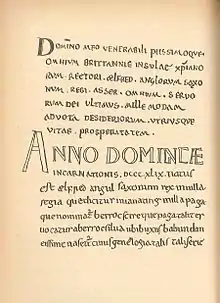 DOMINO MEO VENERABILI PIISSIMOQUE.
OMNIUM BRITTANNIE INSULAE XPIANO
RUM. RECTORI. ÆLFRED. ANGLORUM. SAXO
NUM. REGI. ASSER. OMNIUM. SERVO
RUM DEI ULTIMUS. MILLE MODAM
ADVOTA DESIDERIORUM. UTRIUSQUE
VITAE. PROSPERITATEM.
ANNO DOMINICÆ
INCARNATIONIS. DCCC.XLIX. natus
est ælfred angul saxonum rex in villa
regia que dicitur uuanating in illa paga
que nominatur berrocscire que paga taliter
vocatur a berroc silva ubi buxus abundan
tissime nascitur cuius genelogia tali serie